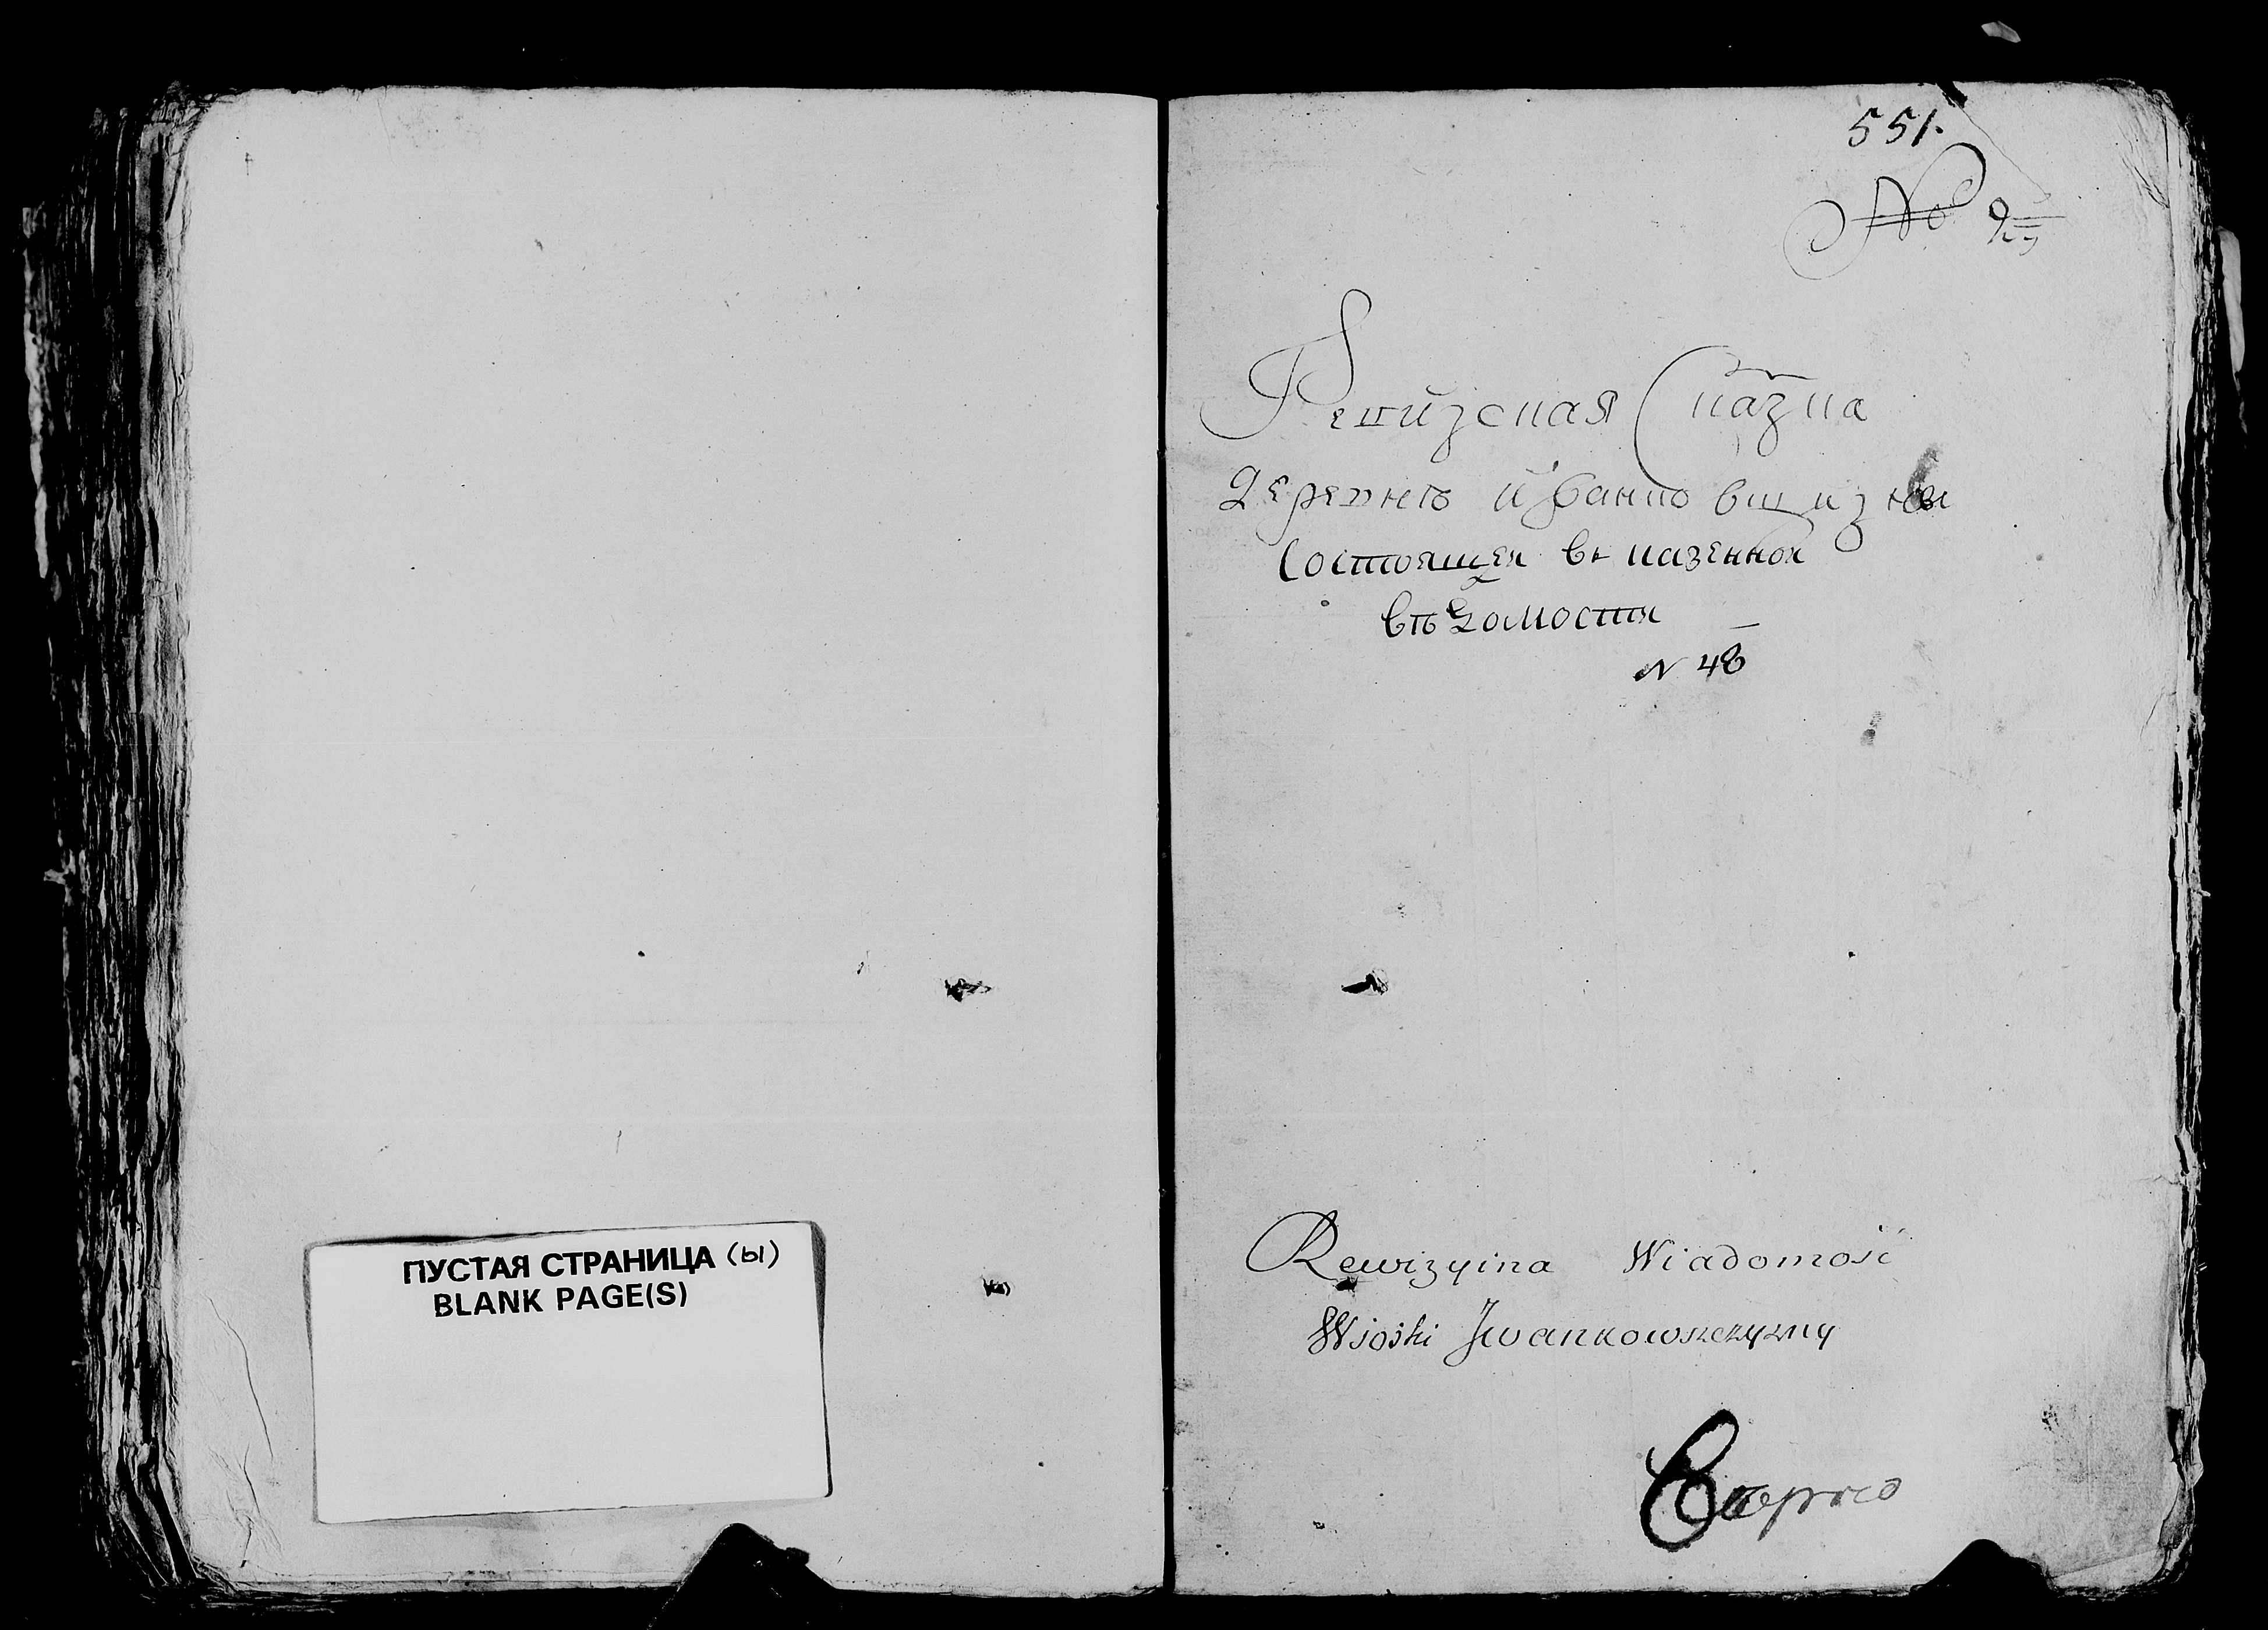 ПУСТАЯ СТРАНИЦА (Ы)
BLANK PAGE(S)
551.
No 9
Ревизская Сказка
деревнѣ иванковшизны
Состоящей въ казенной
вѣдомости
N 48
Rewizyina Wiadomość
Wioski Jwankowszczyzny